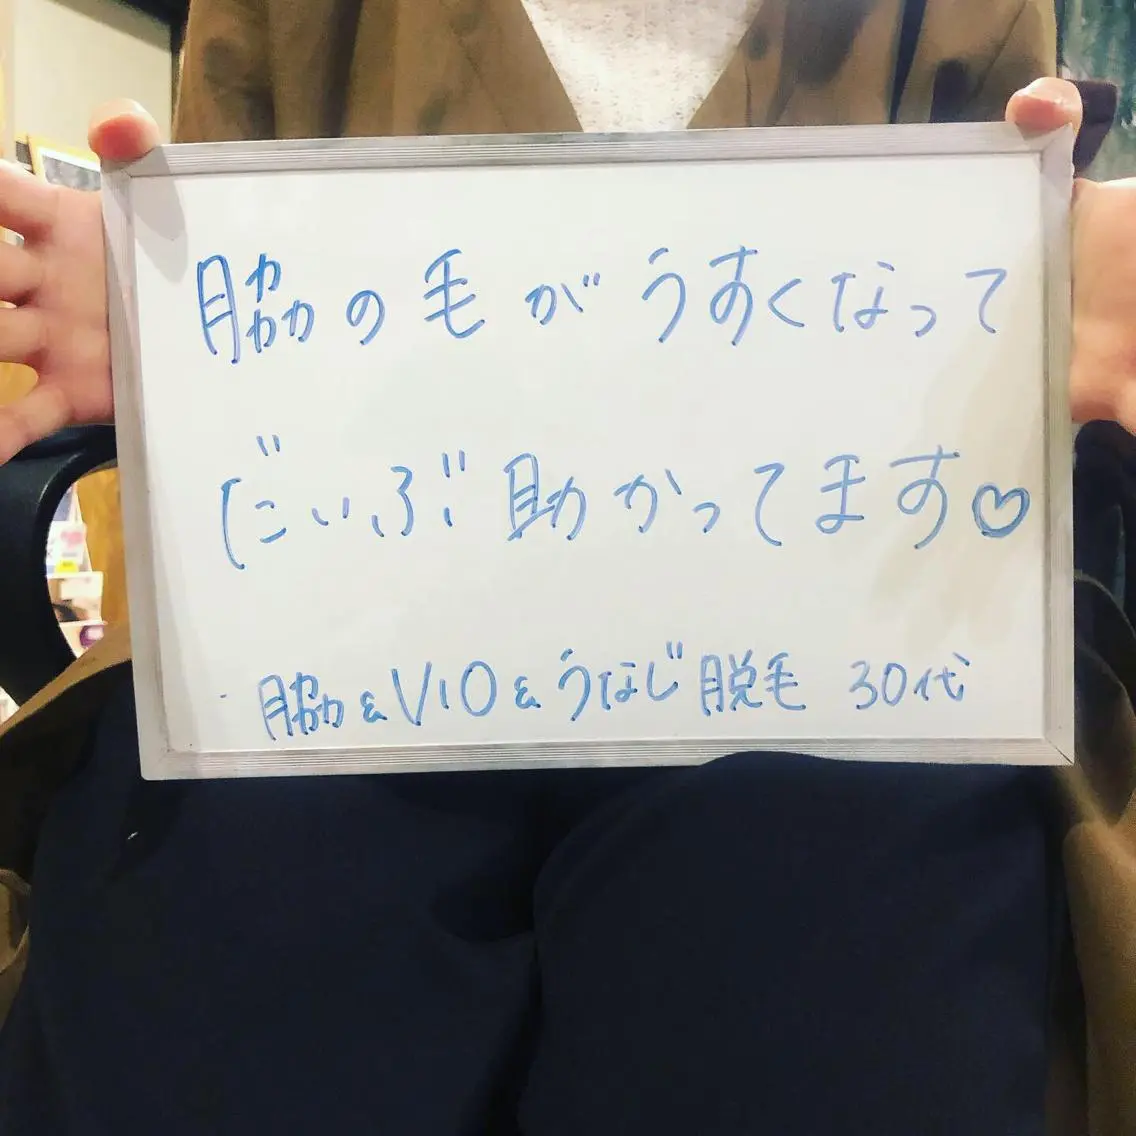 脇の毛がうすくなって
だいぶ助かってます♡
脇&VIO&うなじ脱毛 30代